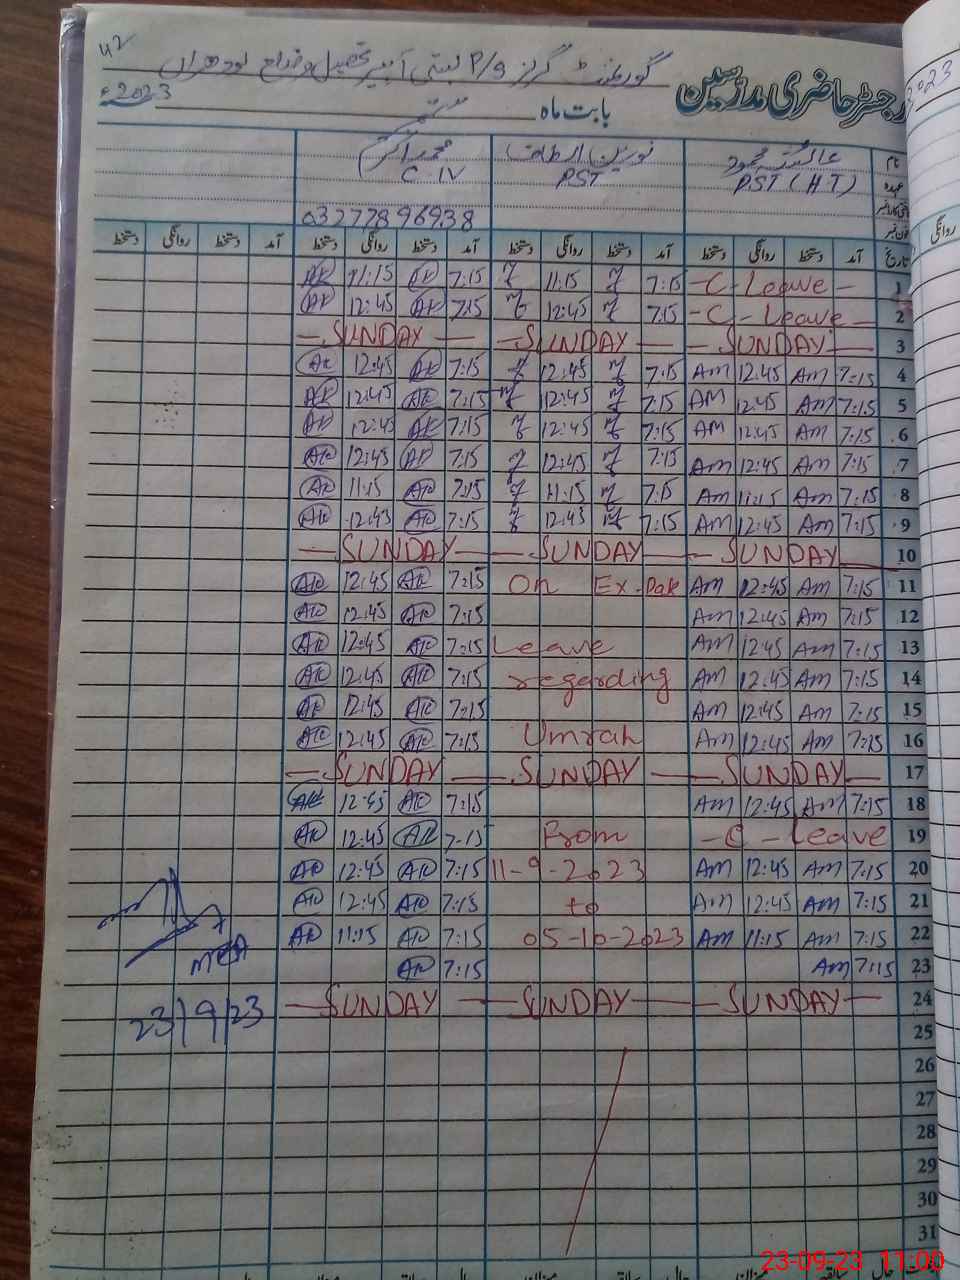 42
گورنمنٹ گرلز P/S بستی آبیر تحصیل و ضلع لودھراں
رجسٹر حاضری مدرسین بابت ماہ ستمبر 2023ء
نام عائشہ محمود نورین الطاف محمد اکرم
عہدہ PST (H.T) PST C-IV
فون نمبر 03277896938
تاریخ آمد دستخط روانگی دستخط آمد دستخط روانگی دستخط آمد دستخط روانگی دستخط آمد دستخط روانگی دستخط
AK 11:15 AK 7:15 11:15 7:15 -C- Leave - 1
AK 12:45 AK 7:15 12:45 7:15 -C- Leave - 2
— SUNDAY — — SUNDAY — — SUNDAY — 3
AK 12:45 AK 7:15 12:45 7:15 Am 12:45 Am 7:15 4
AK 12:45 AK 7:15 12:45 7:15 AM 12:45 Am 7:15 5
AK 12:45 AK 7:15 12:45 7:15 AM 12:45 Am 7:15 6
AK 12:45 AK 7:15 12:45 7:15 Am 12:45 Am 7:15 7
AK 11:15 AK 7:15 11:15 7:15 Am 11:15 Am 7:15 8
AK 12:45 AK 7:15 12:45 7:15 Am 12:45 Am 7:15 9
— SUNDAY — — SUNDAY — — SUNDAY — 10
AK 12:45 AK 7:15 On Ex-Pak Am 12:45 Am 7:15 11
AK 12:45 AK 7:15 Am 12:45 Am 7:15 12
AK 12:45 AK 7:15 Leave Am 12:45 Am 7:15 13
AK 12:45 AK 7:15 regarding Am 12:45 Am 7:15 14
AK 12:45 AK 7:15 Am 12:45 Am 7:15 15
AK 12:45 AK 7:15 Umrah Am 12:45 Am 7:15 16
— SUNDAY — — SUNDAY — — SUNDAY — 17
AK 12:45 AK 7:15 Am 12:45 Am 7:15 18
AK 12:45 AK 7:15 From - C - Leave 19
AK 12:45 AK 7:15 11-9-2023 Am 12:45 Am 7:15 20
AK 12:45 AK 7:15 to Am 12:45 Am 7:15 21
AK 11:15 AK 7:15 05-10-2023 Am 11:15 Am 7:15 22
MEA
AK 7:15 Am 7:15 23
— SUNDAY — — SUNDAY — — SUNDAY — 24
23/9/23
25
26
27
28
29
30
31
23-09-23 11:00
2023
روانگی